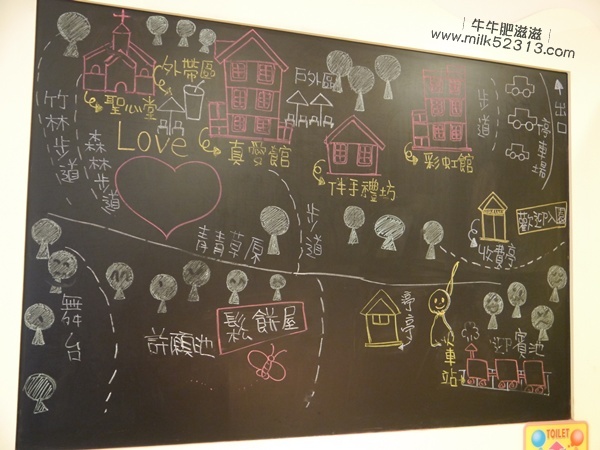 牛牛肥滋滋
www.milk52313.com
外帶區
戶外區
聖心堂
Love
真愛館
伴手禮坊
彩虹館
步道
出口
停車場
竹林步道
森林步道
歡迎入園
收費亭
青青草原
步道
舞台
許願池
鬆餅屋
亭亭
火車站
迎賓池
TOILET